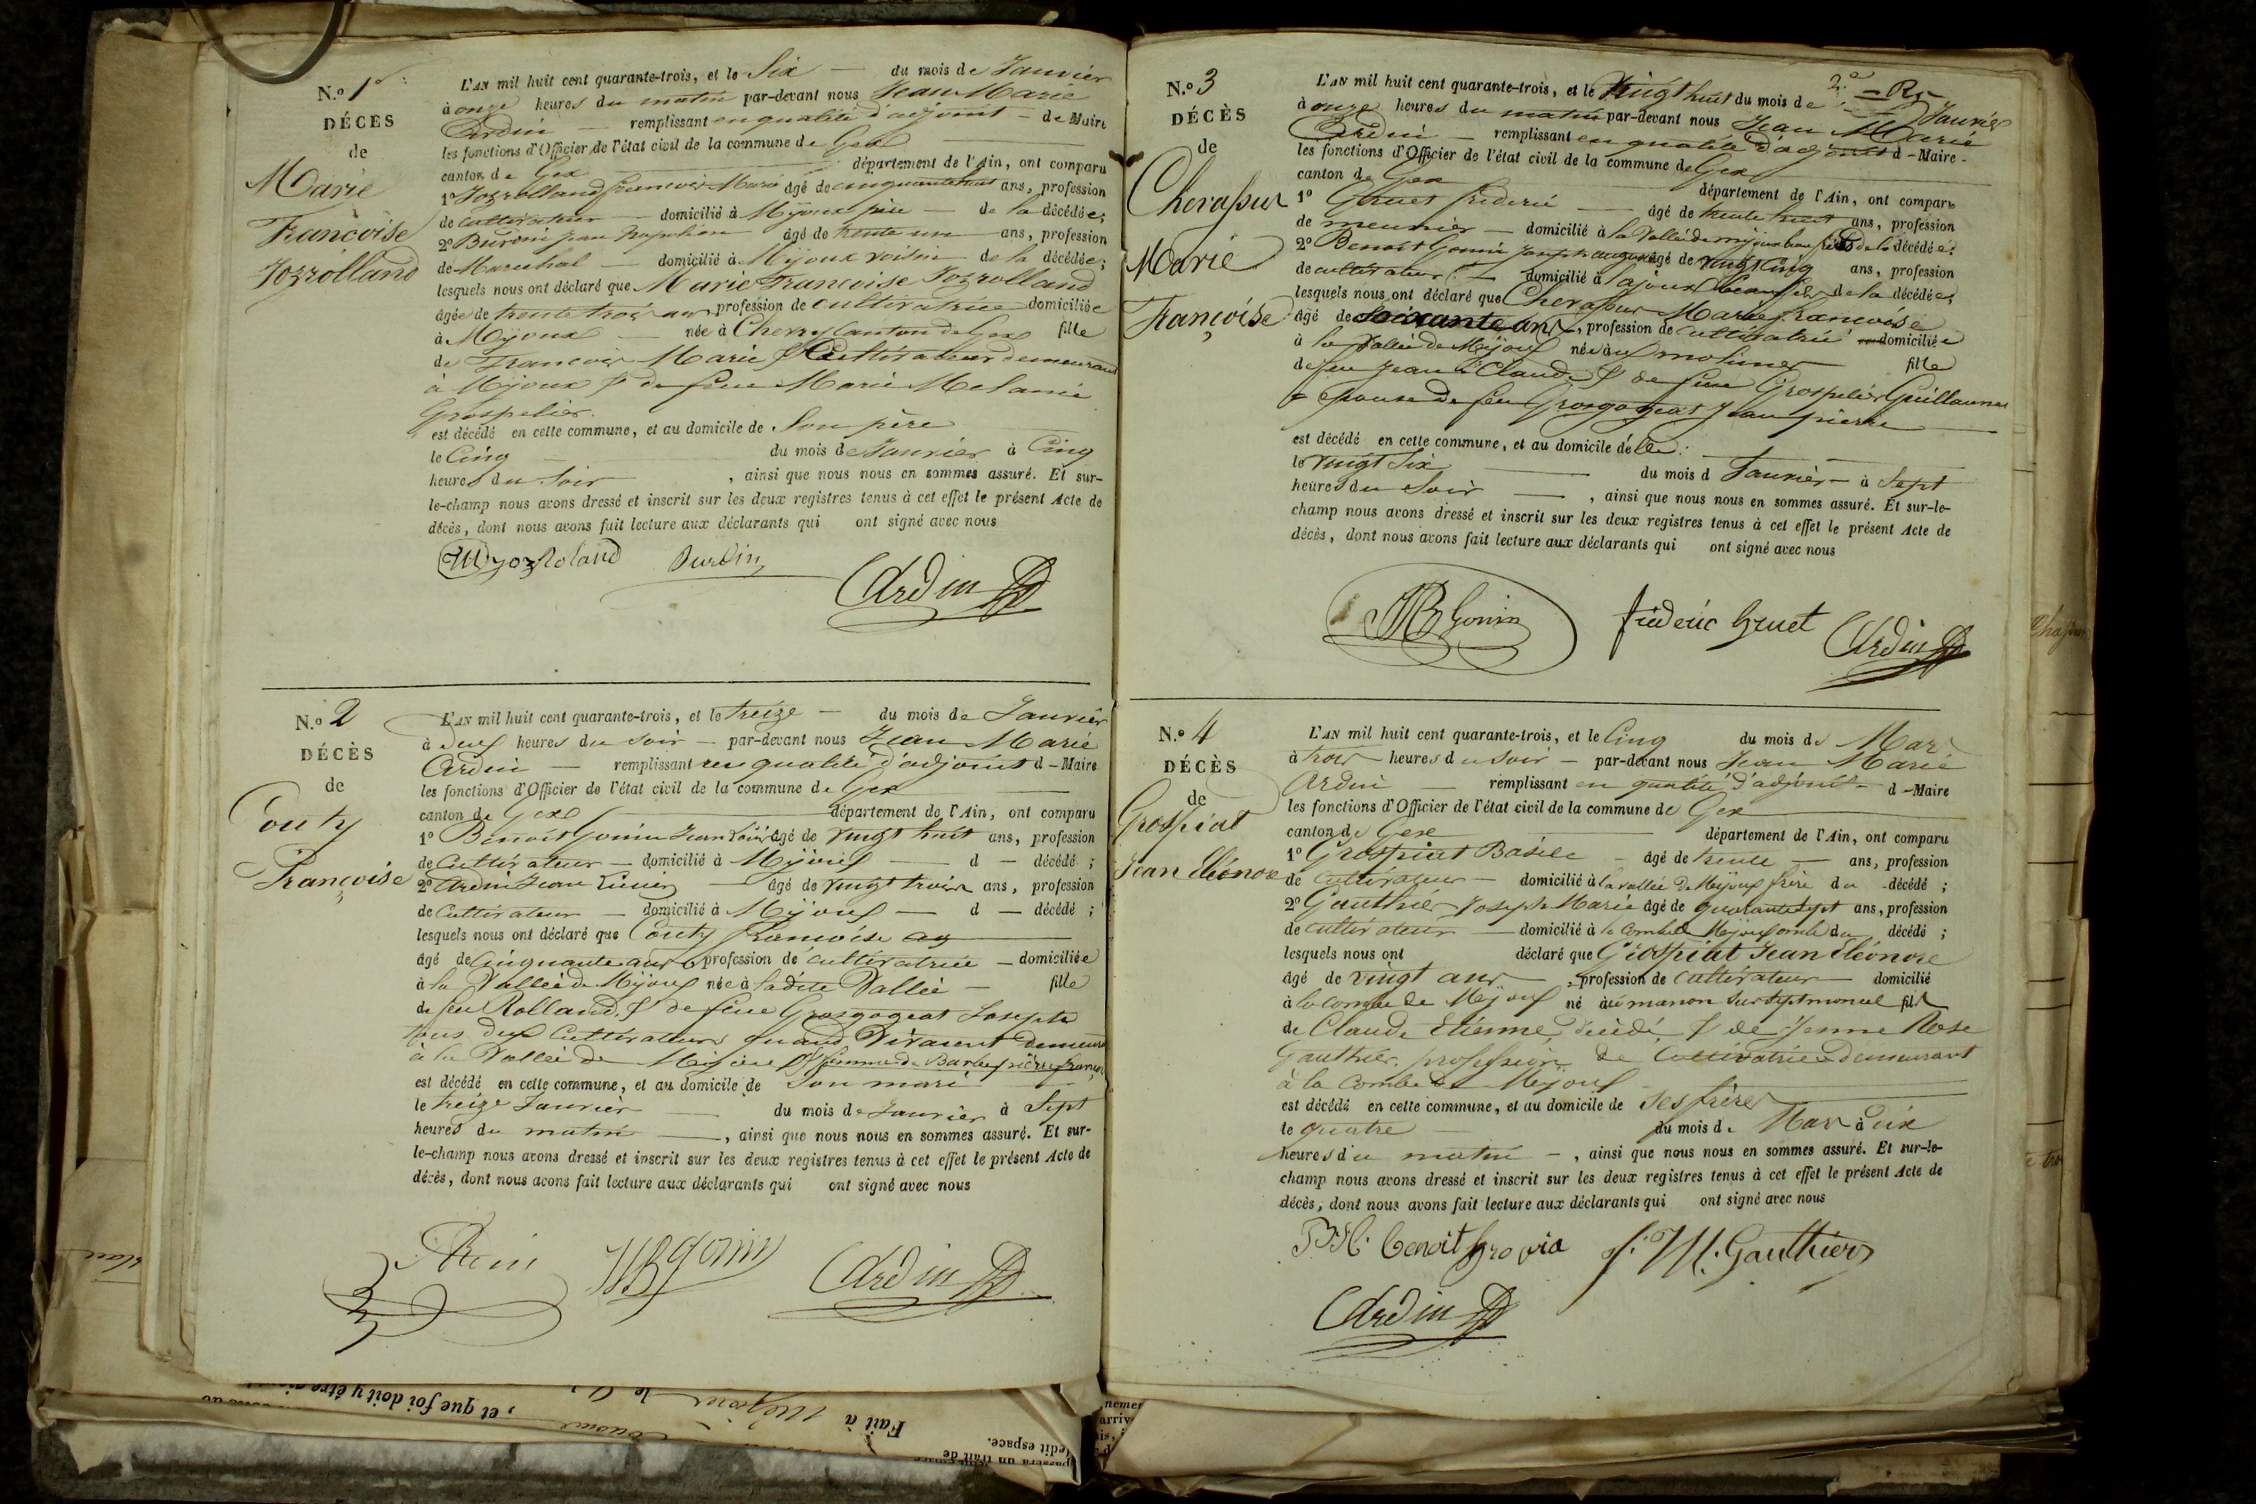 N.º 1er
DÉCÈS
de
Marie
Françoise
Jozzolland
L'AN mil huit cent quarante-trois, et le Six du mois de Janvier
à onze heures du matin par-devant nous Jean Marie
Ardin remplissant en qualité d'adjoint de Maire
les fonctions d'Officier de l'état civil de la commune de Gex
canton de Gex département de l'Ain, ont comparu
1º Jozzolland françois Marie âgé de cinquante huit ans, profession
de cultivateur domicilié à Mijoux père de la décédée;
2º jean Napoléon âgé de trente un ans, profession
de Marechal domicilié à Mijoux voisin de la décédée;
lesquels nous ont déclaré que Marie Francoise Jozzolland
âgée de trente trois ans profession de cultivatrice domiciliée
à Mijoux née à Chezery Canton de Gex fille
de Francois Marie & Cultivateur demeurant
à Mijoux & de feue Marie Melanie
Grospelier.
est décédé en cette commune, et au domicile de Son père
le Cinq du mois de Janvier à Cinq
heures du soir, ainsi que nous nous en sommes assuré. Et sur-
le-champ nous avons dressé et inscrit sur les deux registres tenus à cet effet le présent Acte de
décès, dont nous avons fait lecture aux déclarants qui ont signé avec nous
Ardin
N.º 2
DÉCÈS
de
Couty
Françoise
L'AN mil huit cent quarante-trois, et le treize du mois de Janvier
à deux heures du soir par-devant nous Jean Marie
Ardin remplissant en qualité d'adjoint d Maire
les fonctions d'Officier de l'état civil de la commune de Gex
canton de Gex département de l'Ain, ont comparu
1º Benoit Gonin Jean âgé de vingt huit ans, profession
de Cultivateur domicilié à Mijoux d décédé;
2º Ardin Jean âgé de vingt trois ans, profession
de Cultivateur domicilié à Mijoux d décédé;
lesquels nous ont déclaré que Couty francoise
âgé de Cinquante ans profession de cultivatrice domiciliée
à la Vallée de Mijoux née à ladite Vallée fille
de feu Rolland & de feue Grosgogeat Josephe
tous deux Cultivateurs quand Vivaient demeurant
à la Vallée de Mijoux & femme de Barbe pierre françois
est décédé en cette commune, et au domicile de Son mari
le treize Janvier du mois de Janvier à Sept
heures du matin, ainsi que nous nous en sommes assuré. Et sur-
le-champ nous avons dressé et inscrit sur les deux registres tenus à cet effet le présent Acte de
décès, dont nous avons fait lecture aux déclarants qui ont signé avec nous
Ardin JB Gonin Ardin
N.º 3
DÉCÈS
de
Chevassus
Marie
Françoise
L'AN mil huit cent quarante-trois, et le Vingt huit du mois de Janvier
à onze heures du matin par-devant nous Jean Marie
Ardin remplissant en qualité d'adjoint d Maire
les fonctions d'Officier de l'état civil de la commune de Gex
canton de Gex département de l'Ain, ont comparu
1º Gruet fréderic âgé de trente huit ans, profession
de meunier domicilié à la Vallée de mijoux beau fils de la décédée;
2º Benoit Gonin Joseph âgé de vingt cinq ans, profession
de cultivateur domicilié à Lajoux beau fils de la décédée;
lesquels nous ont déclaré que Chevassus Marie francoise
âgé de Soixante ans, profession de cultivatrice domiciliée
à la Vallée de Mijoux née aux molunes fille
de feu Jean Claude & de feue Grospelier Guillaume
& epouse de feu Grosgogeat Jean pierre
est décédé en cette commune, et au domicile d'elle.
le vingt Six du mois d Janvier à Sept
heures du Soir, ainsi que nous nous en sommes assuré. Et sur-le-
champ nous avons dressé et inscrit sur les deux registres tenus à cet effet le présent Acte de
décès, dont nous avons fait lecture aux déclarants qui ont signé avec nous
JB Gonin fréderic Gruet Ardin
N.º 4
DÉCÈS
de
Grospiat
Jean Eléonore
L'AN mil huit cent quarante-trois, et le Cinq du mois de Mars
à trois heures du soir par-devant nous Jean Marie
Ardin remplissant en qualité d'adjoint d Maire
les fonctions d'Officier de l'état civil de la commune de Gex
canton de Gex département de l'Ain, ont comparu
1º Grospiat Basile âgé de trente ans, profession
de cultivateur domicilié à la vallée de Mijoux frère du décédé;
2º Gauthier Joseph Marie âgé de quarante sept ans, profession
de cultivateur domicilié à la Combe de Mijoux oncle du décédé;
lesquels nous ont déclaré que Grospiat Jean Eléonore
âgé de vingt ans, profession de Cultivateur domicilié
à la Combe de Mijoux né à Septmoncel fils
de Claude Etienne décédé & de Jeanne Rose
Gauthier profession de Cultivatrice demeurant
à la Combe de Mijoux
est décédé en cette commune, et au domicile de Ses frères
le quatre du mois de Mars à dix
heures du matin, ainsi que nous nous en sommes assuré. Et sur-le-
champ nous avons dressé et inscrit sur les deux registres tenus à cet effet le présent Acte de
décès, dont nous avons fait lecture aux déclarants qui ont signé avec nous
J. M. Gauthier
Ardin
, et que foi doit y être
Fait à